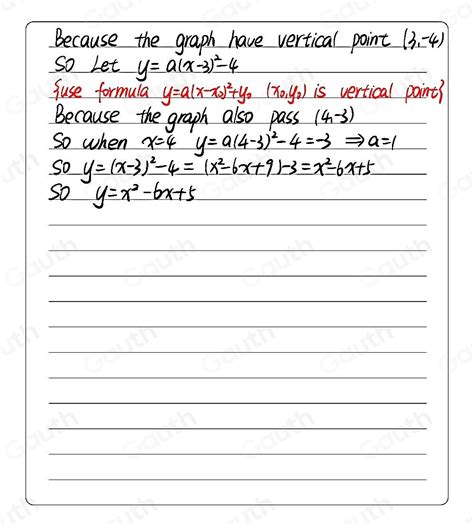 Because the graph have vertical point (3,-4)
So Let y=a(x-3)²-4
{use formula y=a(x-x₀)²+y₀ (x₀,y₀) is vertical point}
Because the graph also pass (4,-3)
So when x=4 y=a(4-3)²-4=-3 ⇒a=1
So y=(x-3)²-4=(x²-6x+9)-3=x²-6x+5
So y=x²-6x+5
Gauth